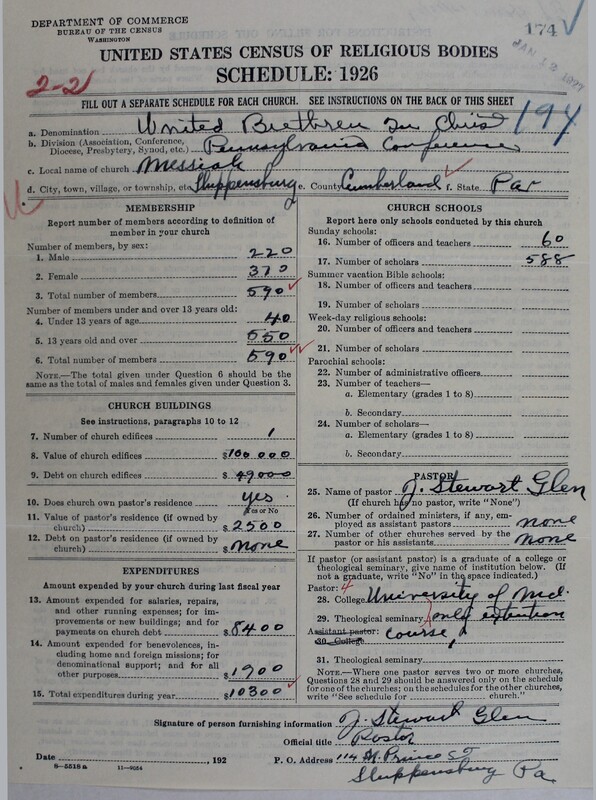 DEPARTMENT OF COMMERCE
BUREAU OF THE CENSUS
WASHINGTON
174
UNITED STATES CENSUS OF RELIGIOUS BODIES
SCHEDULE: 1926
2-2
FILL OUT A SEPARATE SCHEDULE FOR EACH CHURCH. SEE INSTRUCTIONS ON THE BACK OF THIS SHEET
194
a. Denomination United Brethren In Christ
b. Division (Association, Conference, Diocese, Presbytery, Synod, etc.) Pennsylvania Conference
c. Local name of church Messiah
d. City, town, village, or township, etc. Shippensburg e. County Cumberland f. State Pa
MEMBERSHIP
Report number of members according to definition of member in your church
Number of members, by sex:
1. Male 220
2. Female 370
3. Total number of members 590
Number of members under and over 13 years old:
4. Under 13 years of age 40
5. 13 years old and over 550
6. Total number of members 590
NOTE.—The total given under Question 6 should be the same as the total of males and females given under Question 3.
CHURCH BUILDINGS
See instructions, paragraphs 10 to 12
7. Number of church edifices 1
8. Value of church edifices $100 000
9. Debt on church edifices $ 49000
10. Does church own pastor's residence yes
Yes or No
11. Value of pastor's residence (if owned by church) $2500
12. Debt on pastor's residence (if owned by church) $ none
EXPENDITURES
Amount expended by your church during last fiscal year
13. Amount expended for salaries, repairs, and other running expenses; for improvements or new buildings; and for payments on church debt $8400
14. Amount expended for benevolences, including home and foreign missions; for denominational support; and for all other purposes $1900
15. Total expenditures during year $10300
CHURCH SCHOOLS
Report here only schools conducted by this church
Sunday schools:
16. Number of officers and teachers 60
17. Number of scholars 588
Summer vacation Bible schools:
18. Number of officers and teachers
19. Number of scholars
Week-day religious schools:
20. Number of officers and teachers
21. Number of scholars
Parochial schools:
22. Number of administrative officers
23. Number of teachers—
a. Elementary (grades 1 to 8)
b. Secondary
24. Number of scholars—
a. Elementary (grades 1 to 8)
b. Secondary
PASTOR
25. Name of pastor J. Stewart Glen
(If church has no pastor, write "None")
26. Number of ordained ministers, if any, employed as assistant pastors none
27. Number of other churches served by the pastor or his assistants none
If pastor (or assistant pastor) is a graduate of a college or theological seminary, give name of institution below. (If not a graduate, write "No" in the space indicated.)
Pastor: 4
28. College University of Md.
29. Theological seminary only extention
Assistant pastor: course
30. College
31. Theological seminary
NOTE.—Where one pastor serves two or more churches, Questions 28 and 29 should be answered only on the schedule for one of the churches; on the schedules for the other churches, write "See schedule for church."
Signature of person furnishing information J. Stewart Glen
Official title Pastor
Date , 192 P. O. Address 114 N. Prince St
8-5518 a 11-9054 Shippensburg Pa